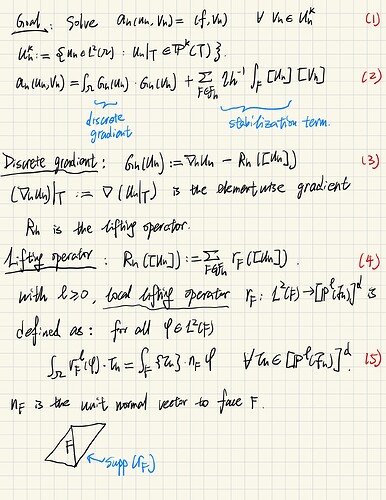 Goal: Solve aₕ(uₕ, vₕ) = (f, vₕ) ∀ vₕ ∈ Uₕᵏ (1)
Uₕᵏ := {uₕ ∈ L²(Ω) : uₕ|_T ∈ ℙᵏ(T)}.
aₕ(uₕ, vₕ) = ∫_Ω Gₕ(uₕ) · Gₕ(vₕ) + Σ_{F∈Fₕ} ηh⁻¹ ∫_F [uₕ] [vₕ] (2)
discrete gradient
stabilization term.
Discrete gradient: Gₕ(uₕ) := ∇ₕuₕ − Rₕ([uₕ]) (3)
(∇ₕuₕ)|_T := ∇(uₕ|_T) is the elementwise gradient
Rₕ is the lifting operator.
Lifting operator: Rₕ([uₕ]) := Σ_{F∈Fₕ} r_F([uₕ]). (4)
with l≥0, local lifting operator r_F : L²(F) → [ℙˡ(Tₕ)]ᵈ is
defined as: for all φ ∈ L²(F)
∫_Ω r_Fˡ(φ) · τₕ = ∫_F {τₕ} · n_F φ ∀ τₕ ∈ [ℙˡ(Tₕ)]ᵈ (5)
n_F is the unit normal vector to face F.
F
supp(r_F)